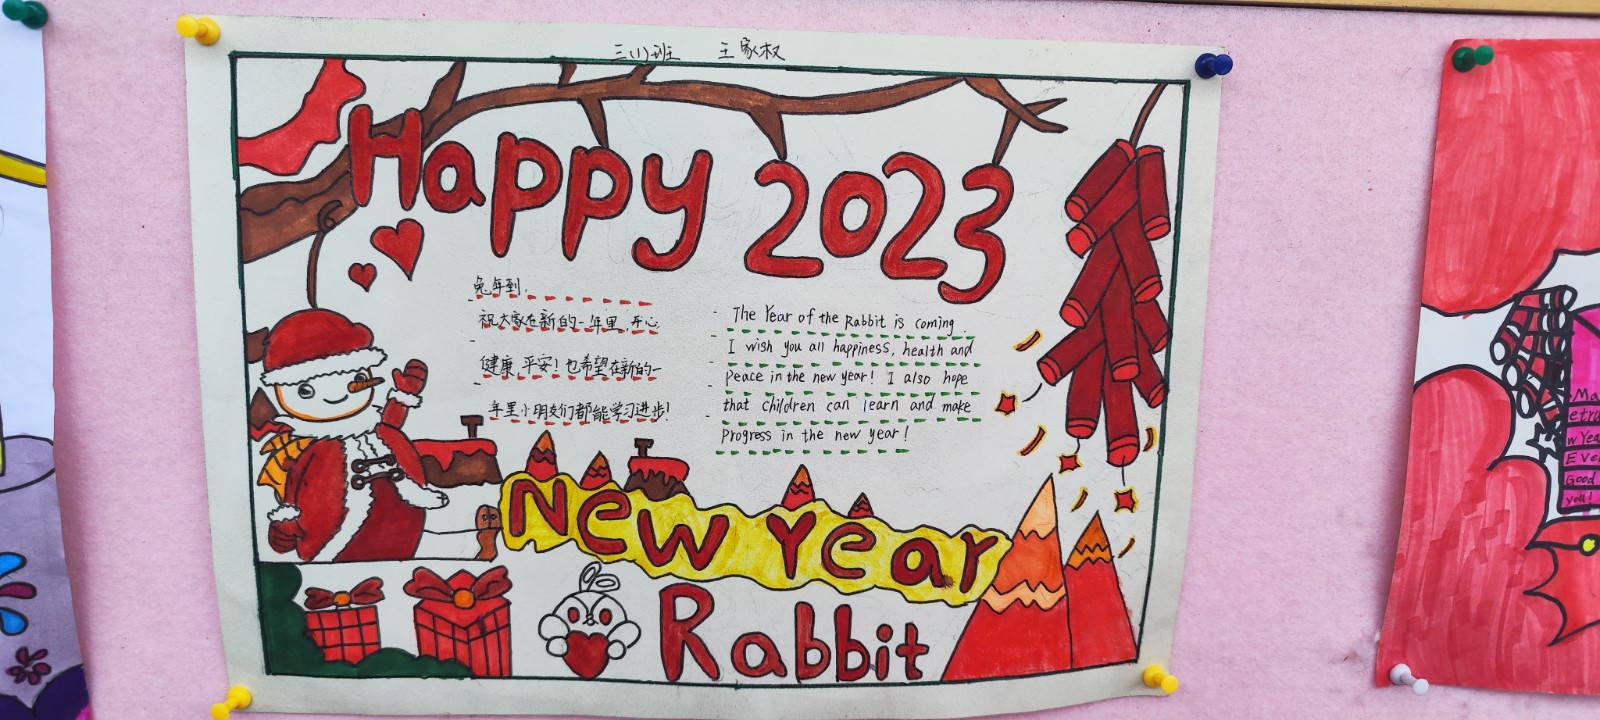 三(1)班 王家权
Happy 2023
兔年到,
祝大家在新的一年里,开心
健康,平安!也希望在新的一
年里小朋友们都能学习进步!
The Year of the Rabbit is coming.
I wish you all happiness, health and
Peace in the new year! I also hope
that children can learn and make
Progress in the new year!
New Year
Rabbit
w Yea
Good
you!